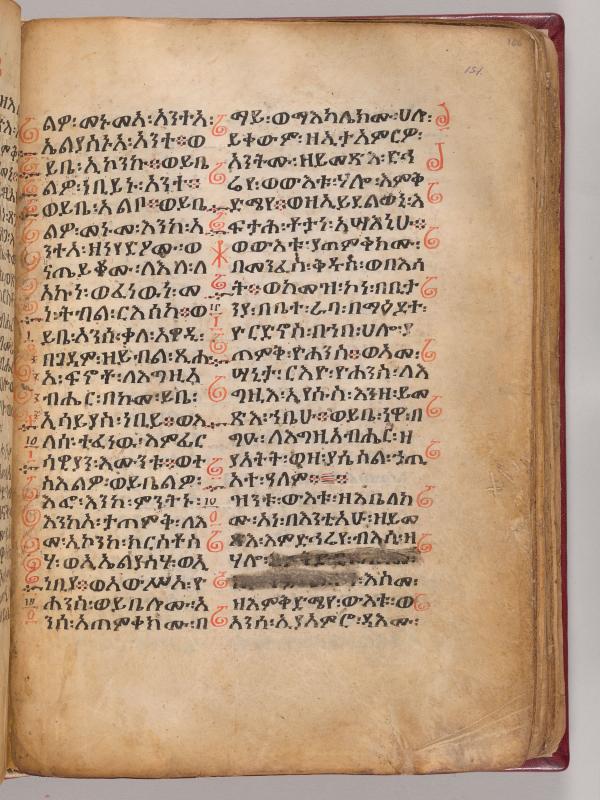 166
151.
ልዎ፡መኑ፡መአ፡አንተአ፡
ኤልያስኑአ፡አንተ፡፡ወ
ይቤ፡ኢኮንኩ፡፡ወይቤ
ልዎ፡ነቢይኑ፡አንተ፡፡
ወይቤ፡አልቦ፡፡ወይቤ
ልዎ፡መኑ፡መ፡እንከ፡አ
ንተአ፡ዘንየዐዖሙ፡ወ
ናጤይቆሙ፡ለእለ፡ለ
አኩነ፡ወፈነዉነ፡መ
ነ፡ትብል፡ርእሰከ፡፡ወ
ይቤ፡አንሰ፡ቃለ፡አዋዲ፡
በገዳም፡ዘይብል፡ጺሑ
አ፡ፍኖቶ፡ለእግዚአ
ብሔር፡በከመ፡ይቤ፡
ኢሳይያስ፡ነቢይ፡፡ወእ
ለሰ፡ተፈነዉ፡እምፈር
ሳዊያን፡እሙንቱ፡፡ወተ
ስእልዎ፡ወይቤልዎ፡
እፎ፡እንከ፡ምንትኑ፡
እንከአ፡ታጠምቅ፡ለእ
መ፡ኢኮንከ፡ክርስቶስ
ሃ፡ወኢኤልያስሃ፡ወኢ
ነቢየ፡፡ወአውሥአ፡ዮ
ሐንስ፡ወይቤሎሙ፡አ
ንሰ፡አጠምቀክሙ፡በ
ማይ፡ወማእከሌክሙ፡ሀሎ፡
ይቀውም፡ዘኢታአምርዎ፡
አንትሙ፡ዘይመጽእ፡ድኅ
ሬየ፡ወውእቱ፡ሃሎ፡እምቅ
ድሜየ፡፡ወዘኢይደልወኒ፡እ
ፍታሕ፡ቶታነ፡አሣእኒሁ፡፡
ወውእቱ፡ያጠምቀክሙ፡
በመንፈስ፡ቅዱስ፡ወበእሳ
ት፡፡ወከመዝ፡ኮነ፡በቢታ
ንያ፡በቤተ፡ራባ፡በማዕዶተ፡
ዮርዳኖስ፡በኀበ፡ሀሎ፡ያ
ጠምቅ፡ዮሐንስ፡፡ወእመ፡
ሣኒታ፡ርእዮ፡ዮሐንስ፡ለእ
ግዚእ፡ኢየሱስ፡እንዘ፡ይመ
ጽእ፡ኀቤሁ፡፡ወይቤ፡ነዋ፡በ
ግዑ፡ለእግዚአብሔር፡ዘ
ያአትት፡ወዘ፡ያሴስል፡ኃጢ
አተ፡ዓለም፡፡
ዝንቱ፡ውእቱ፡ዘእቤለክ
ሙ፡አነ፡በእንቲአሁ፡ዘይመ
ጽእ፡እምድኅሬየ፡ብእሲ፡ዘ
ሃሎ፡
እስመ፡
ዘእምቅድሜየ፡ውእቱ፡ወ
አንሰ፡ኢያአምሮ፡ዳእሙ፡